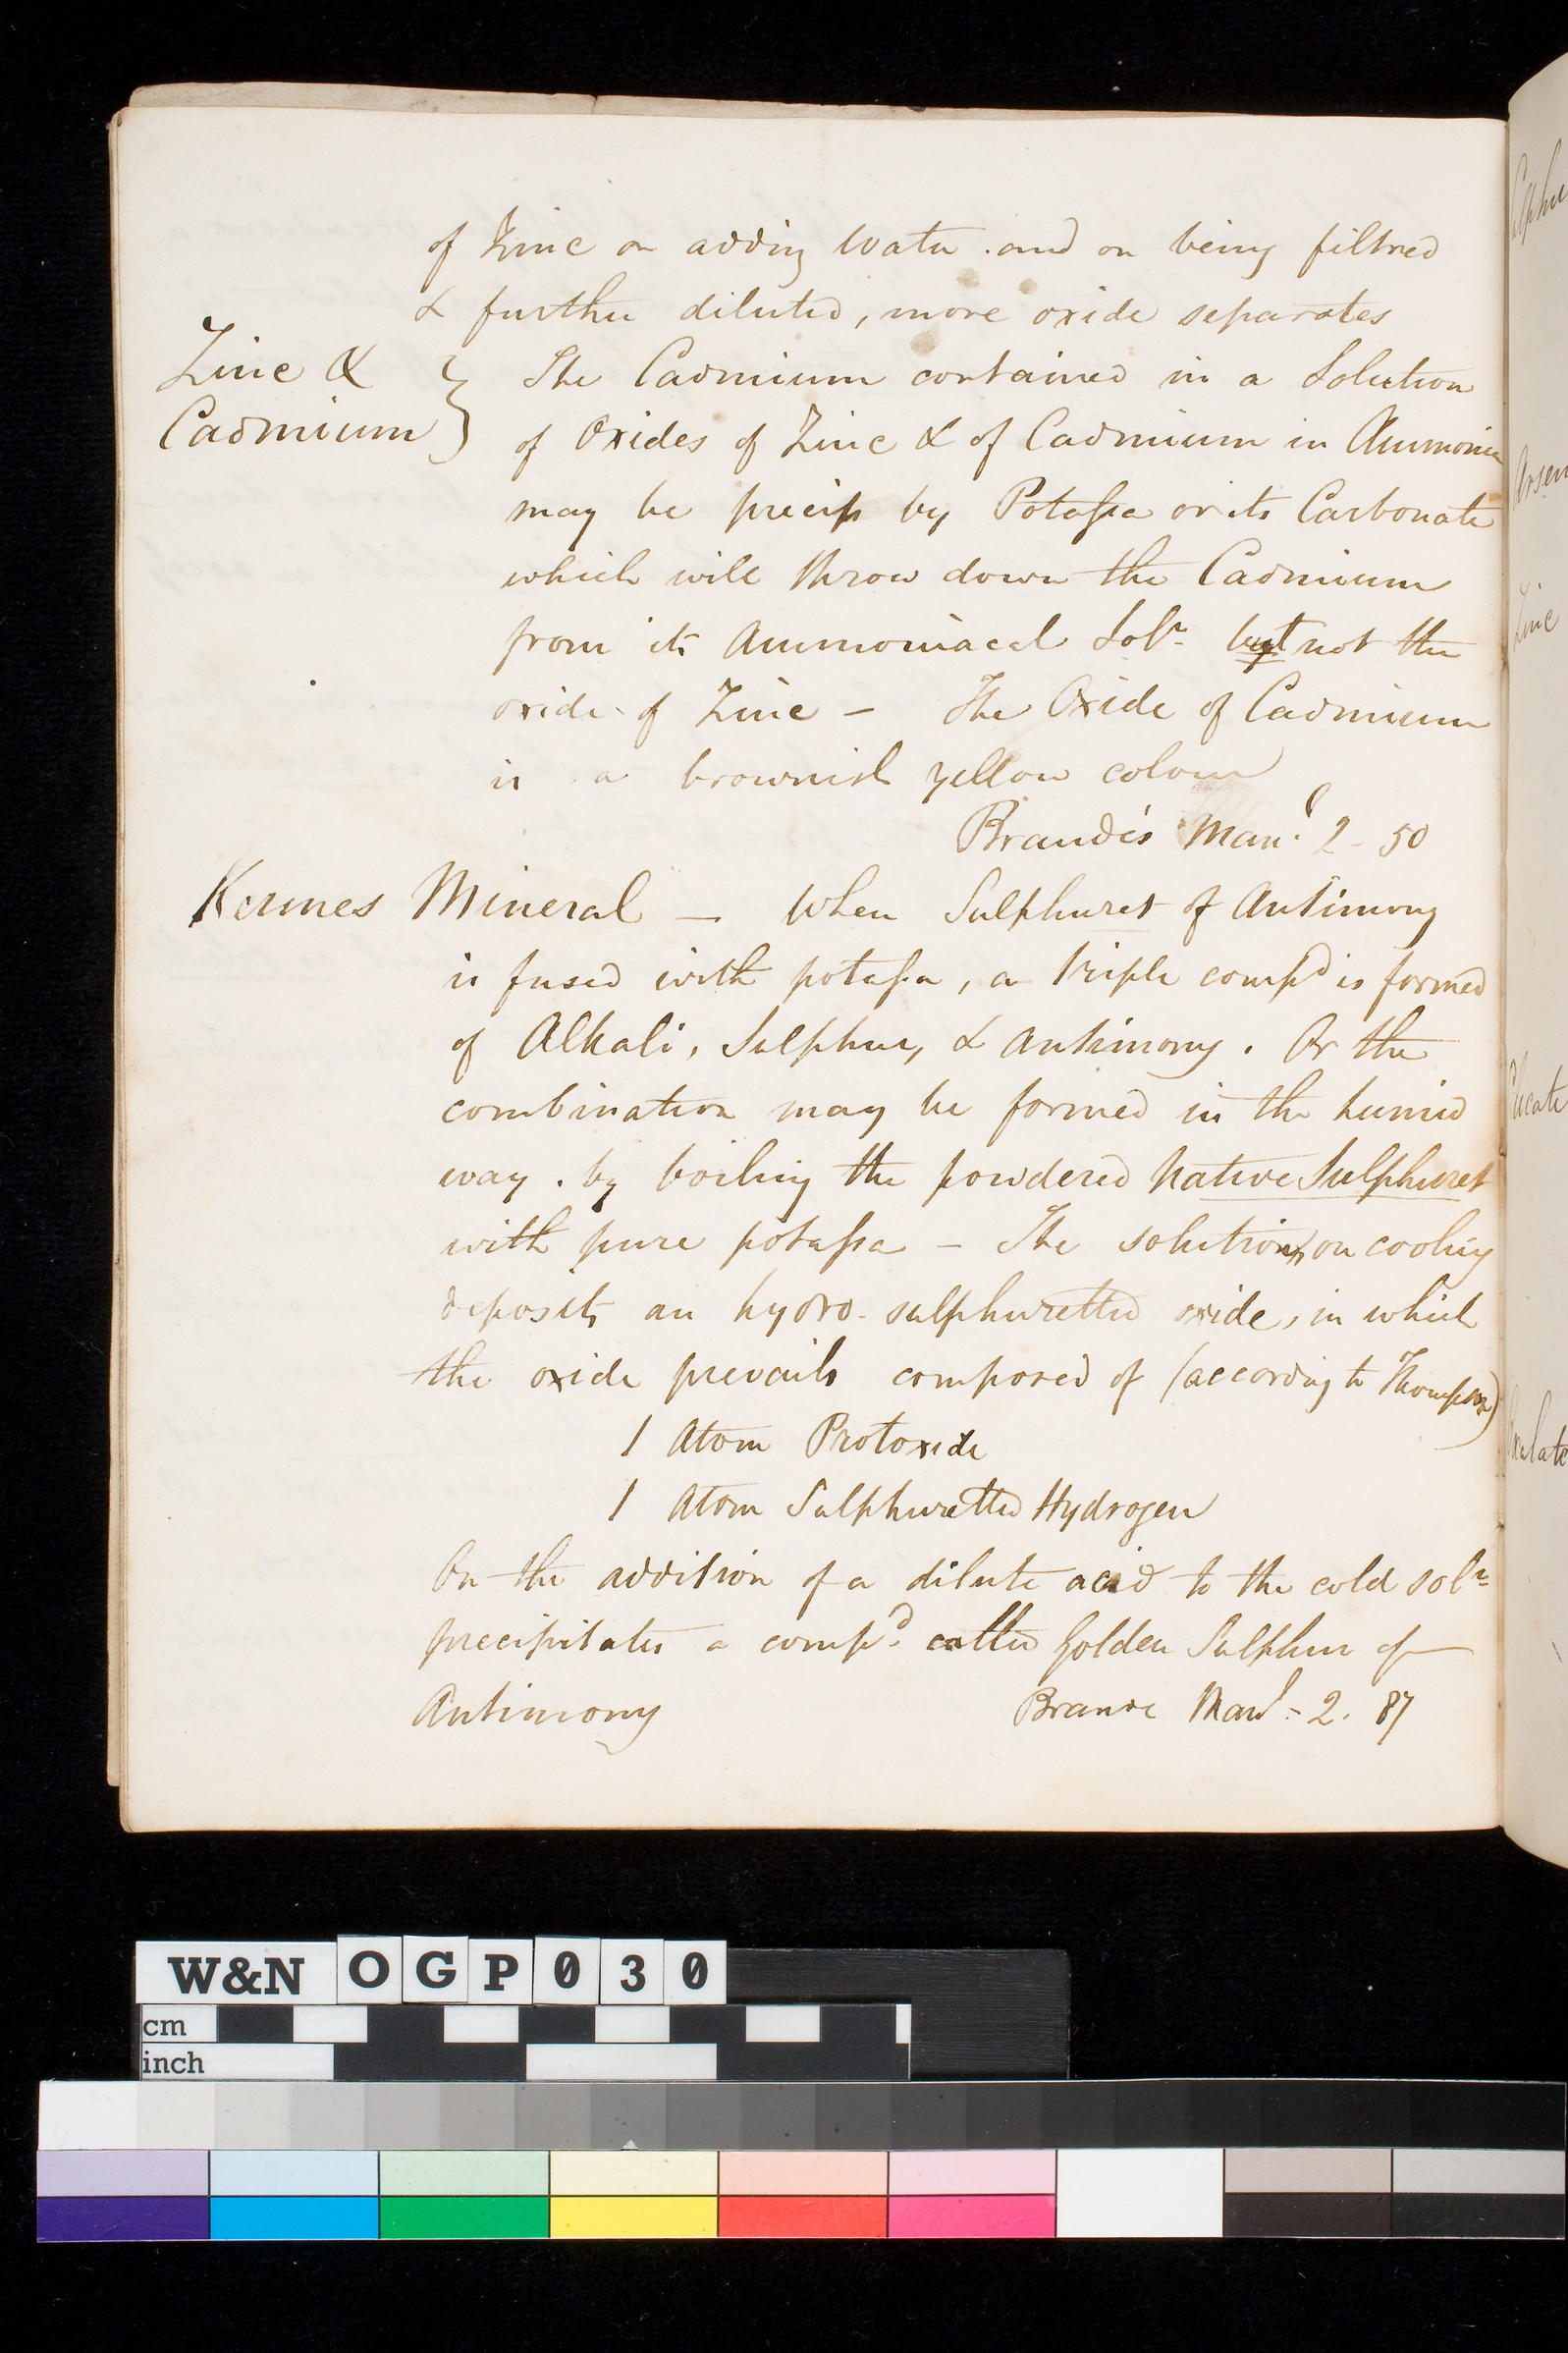 of Zinc on adding Water and on being filtred
& further diluted, more oxide separates
Zinc & } The Cadmium contained in a Solution
Cadmium of Oxides of Zinc & of Cadmium in Ammonia
may be precip by Potassa or its Carbonate
which will throw down the Cadmium
from its Ammoniacal Solⁿ but not the
oxide of Zinc – The Oxide of Cadmium
is a brownish yellow colour
Brande's Manˡ. 2 - 50
Kermes Mineral – When Sulphuret of Antimony
is fused with potassa, a triple compᵈ is formed
of Alkali, Sulphur, & Antimony. Or the
combination may be formed in the humid
way. by boiling the powdered Native Sulphuret
with pure potassa – The solution on cooling
deposits an hydro-sulphuretted oxide, in which
the oxide prevails composed of (according to Thompson)
1 Atom Protoxide
1 Atom Sulphuretted Hydrogen
On the addition of a dilute acid to the cold solⁿ
precipitates a compᵈ. called Golden Sulphur of
Antimony Brande Manˡ - 2. 87
Arsen
Zinc
W&N OGP030
cm
inch